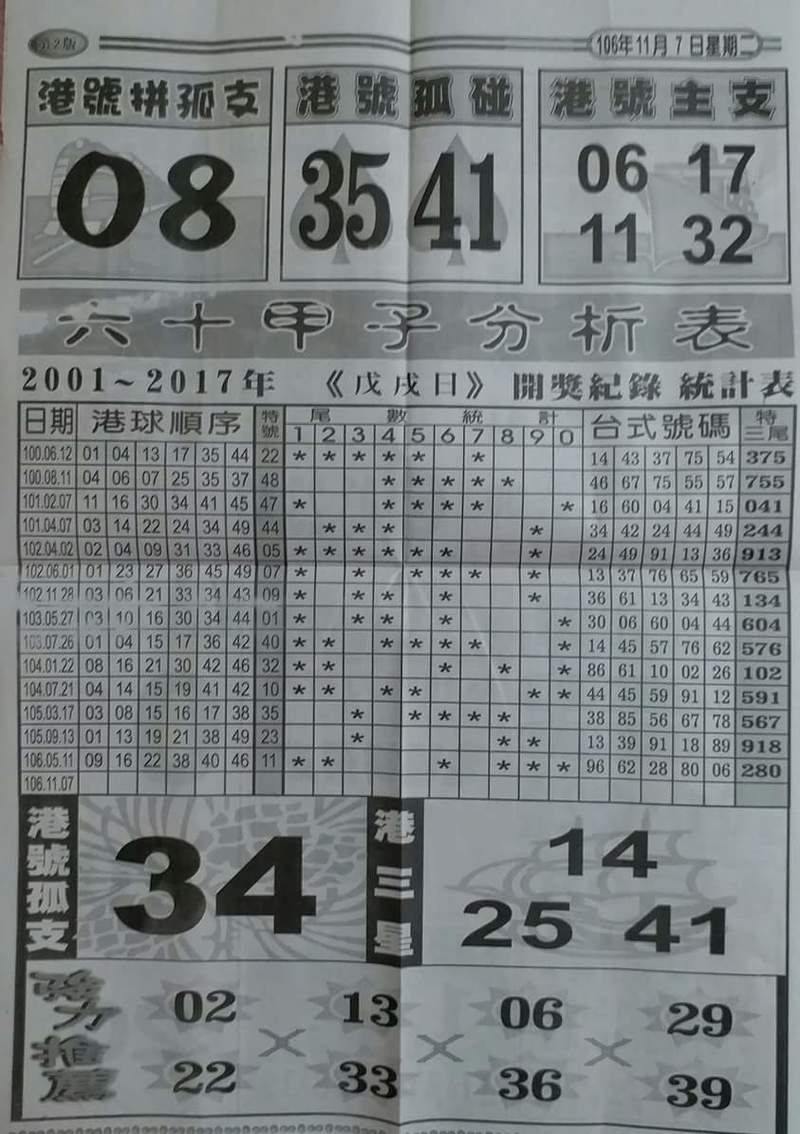 第2版
106年11月7日星期二
港號拼孤支
08
港號孤碰
35 41
港號主支
06 17
11 32
六十甲子分析表
2001~2017年 《戊戌日》 開獎紀錄 統計表
日期 港球順序 特號 尾數統計 台式號碼 特三尾
1 2 3 4 5 6 7 8 9 0
100.06.12 01 04 13 17 35 44 22 * * * * * * 14 43 37 75 54 375
100.08.11 04 06 07 25 35 37 48 * * * * * 46 67 75 55 57 755
101.02.07 11 16 30 34 41 45 47 * * * * * * 16 60 04 41 15 041
101.04.07 03 14 22 24 34 49 44 * * * * 34 42 24 44 49 244
102.04.02 02 04 09 31 33 46 05 * * * * * * * 24 49 91 13 36 913
102.06.01 01 23 27 36 45 49 07 * * * * * * 13 37 76 65 59 765
102.11.28 03 06 21 33 34 43 09 * * * * * 36 61 13 34 43 134
103.05.27 03 10 16 30 34 44 01 * * * * * 30 06 60 04 44 604
103.07.26 01 04 15 17 36 42 40 * * * * * * * 14 45 57 76 62 576
104.01.22 08 16 21 30 42 46 32 * * * * * 86 61 10 02 26 102
104.07.21 04 14 15 19 41 42 10 * * * * * * 44 45 59 91 12 591
105.03.17 03 08 15 16 17 38 35 * * * * * 38 85 56 67 78 567
105.09.13 01 13 19 21 38 49 23 * * * 13 39 91 18 89 918
106.05.11 09 16 22 38 40 46 11 * * * * * * 96 62 28 80 06 280
106.11.07
港號孤支
34
港三星
14
25 41
強力推薦
02 13 06 29
× × ×
22 33 36 39